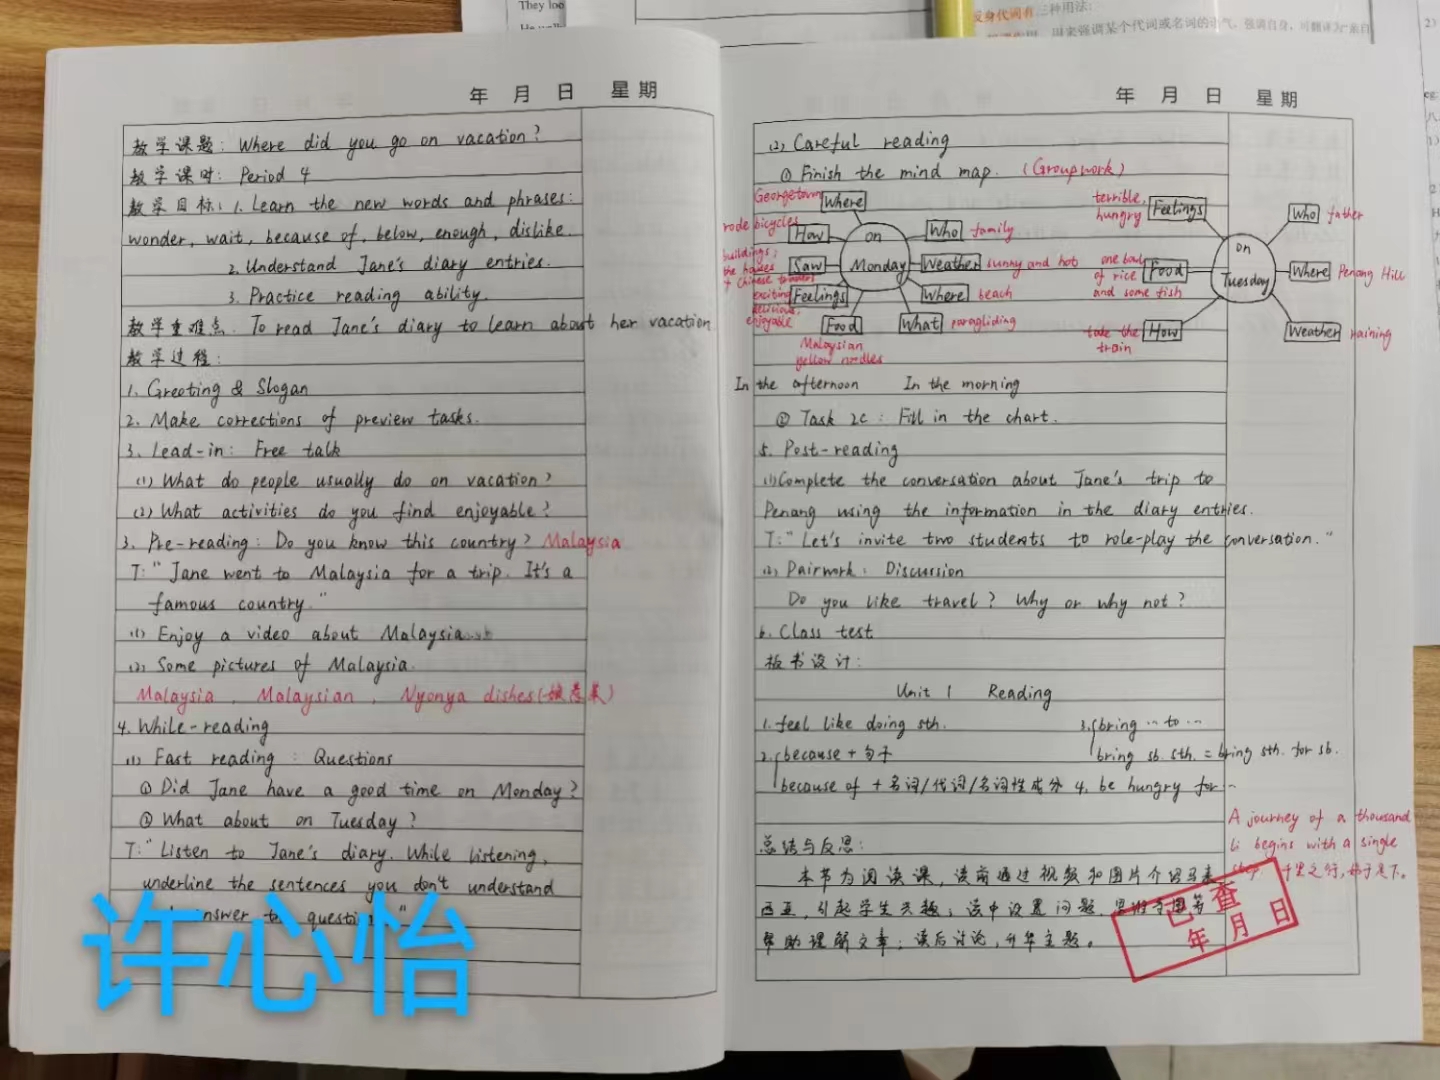 They loo
反身代词有三种用法:
年 月 日 星期
教学课题: Where did you go on vacation?
教学课时: Period 4
教学目标: 1. Learn the new words and phrases:
wonder, wait, because of, below, enough, dislike.
2. Understand Jane's diary entries.
3. Practice reading ability.
教学重难点: To read Jane's diary to learn about her vacation
教学过程:
1. Greeting & Slogan
2. Make corrections of preview tasks.
3. Lead-in: Free talk
(1) What do people usually do on vacation?
(2) What activities do you find enjoyable?
3. Pre-reading: Do you know this country? Malaysia
T: "Jane went to Malaysia for a trip. It's a
famous country."
(1) Enjoy a video about Malaysia
(2) Some pictures of Malaysia.
Malaysia, Malaysian, Nyonya dishes (娘惹菜)
4. While-reading
(1) Fast reading: Questions
① Did Jane have a good time on Monday?
② What about on Tuesday?
T: "Listen to Jane's diary. While listening,
underline the sentences you don't understand
answer questi
许心怡
年 月 日 星期
(2) Careful reading
① Finish the mind map. (Groupwork)
Georgetown Where
rode bicycles How
buildings,
the houses
Chinese traders
Saw
exciting
delicious,
enjoyable
Feelings
Food
Malaysian
yellow noodles
on
Monday
Who family
Weather sunny and hot
Where beach
What paragliding
terrible,
hungry
Feelings
one bowl
of rice
and some fish
Food
take the
train
How
on
Tuesday
Who father
Where Penang Hill
Weather raining
In the afternoon In the morning
② Task 2c: Fill in the chart.
5. Post-reading
(1) Complete the conversation about Jane's trip to
Penang using the information in the diary entries.
T: "Let's invite two students to role-play the conversation."
(2) Pairwork: Discussion
Do you like travel? Why or why not?
6. Class test
板书设计:
Unit 1 Reading
1. feel like doing sth. 3. bring … to …
2. because + 句子 bring sb. sth. = bring sth. for sb.
because of + 名词/代词/名词性成分 4. be hungry for …
A journey of a thousand
li begins with a single
千里之行,始于足下。
总结与反思:
本节为阅读课,读前通过视频和图片介绍马来
西亚,引起学生兴趣;读中设置问题、思维导图等
帮助理解文章;读后讨论,升华主题。
已查
年 月 日